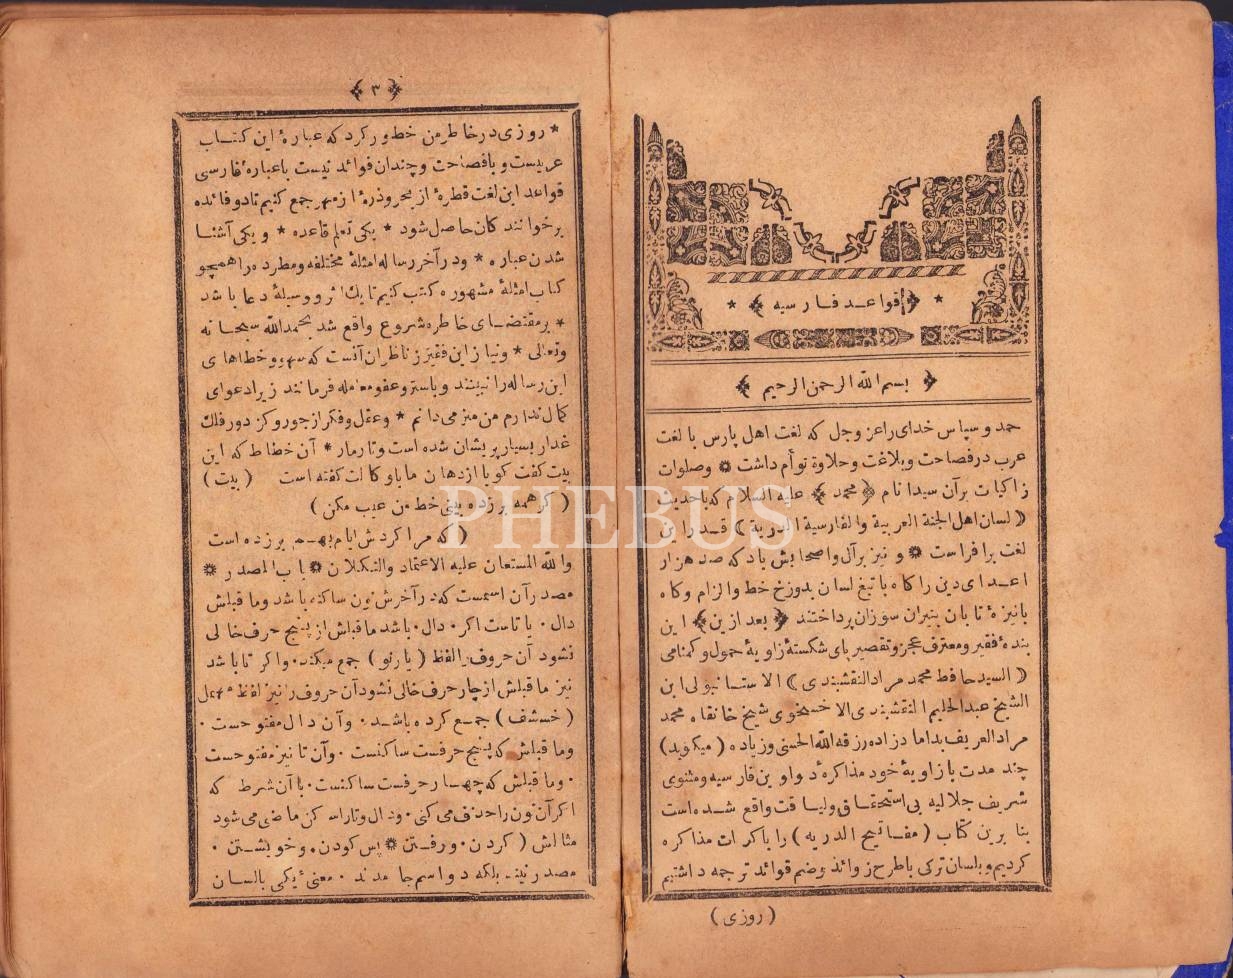 * ﴿ قواعد فارسیه ﴾ *
﴿ بسم الله الرحمن الرحیم ﴾
حمد و سپاس خدای را عز وجل که لغت اهل پارس با لغت
عرب در فصاحت و بلاغت وحلاوة توأم داشت ۞ وصلوات
زاکیات بر آن سید انام ﴿ محمد ﴾ علیه السلام که باحدیث
﴿ لسان اهل الجنة العربیة والفارسیة الدریة ﴾ قدر این
لغت برافراست ۞ و نیز بر آل واصحابش باد که صد هزار
اعدای دین را کاه با تیغ لسان بدوزخ خط والزام وکاه
بانیزهٔ تابان بنیران سوزان پرداختند ﴿ بعد ازین ﴾ این
بندهٔ فقیر ومعترف عجز وتقصیر پای شکستهٔ زاویهٔ خمول و کمنامی
﴿ السید حافظ محمد مراد النقشبندی ﴾ الاستانبولی ابن
الشیخ عبد الحلیم النقشبندی شیخ خانقاه محمد
مراد العریف بداماد زاده رزقه الله الحسنی وزیاده ( میکوید )
چند مدت با زاویهٔ خود مذاکرهٔ دواوین فارسیه ومثنوی
شریف جلالیه بی استحقاق ولیاقت واقع شده است
بنا برین کتاب ( مفاتیح الدریه ) را باکرات مذاکره
کردیم و بلسان ترکی باطرح زوائد وضم فوائد ترجمه داشتیم
( روزی )
﴿ ٣ ﴾
* روزی در خاطر من خطور کرد که عبارهٔ این کتاب
عربیست و بافصاحت و چندان فوائد نیست با عبارهٔ فارسی
قواعد این لغت قطرهٔ از بحر وذرهٔ از مهر جمع کنیم تا دو فائده
بر خوانندکان حاصل شود * یکی تعلم قاعده * و یکی آشنا
شدن عباره * ودر آخر رساله امثلهٔ مختلفه ومطرده را همچو
کتاب امثلهٔ مشهوره کتب کنیم تا یك اثر و وسیلهٔ دعا باشد
* بر مقتضای خاطره شروع واقع شد بحمد الله سبحانه
وتعالی * ونیاز این فقیر ز ناظران آنست که سهو وخطاهای
این رساله را نبینند و باستر وعفو معامله فرمانند زیرا دعوای
کمال ندارم من منز می دانم * وعقل وفکر از جور وکز دور فلك
غدار بسیار پریشان شده است وتارمار * آن خطاط که این
بیت کفت کویا از دهان ما باو کالت کفته است ( بیت )
( کر همه پرزده بینی خط من عیب مکن )
( که مرا کردش ایام بهم برزده است
والله المستعان علیه الاعتماد والتکلان ۞ باب المصدر ۞
مصدر آن اسمست که در آخرش نون ساکنه باشد وما قبلش
دال · یا تاست اکر · دال · باشد ما قبلش از پنج حرف خالی
نشود آن حروف را لفظ ( یارنو ) جمع میکند · واکر تا باشد
نیز ما قبلش از چار حرف خالی نشود آن حروف را نیز لفظ مهمل
( خسشف ) جمع کرده باشد · وآن دال مفتوحست ·
وما قبلش که پنج حرفست ساکنست · وآن تا نیز مفتوحست
· وما قبلش که چهار حرفست ساکنست · با آن شرط که
اکر آن نون را حذف می کنی · ودال وتا را ساکن ماضی می شود
مثالش ( کردن · ورفتن ۞ پس کودن · وخویشتن ·
مصدر نیند بلکه دو اسم جامدند · معنیٔ یکی بالسان
PHEBUS